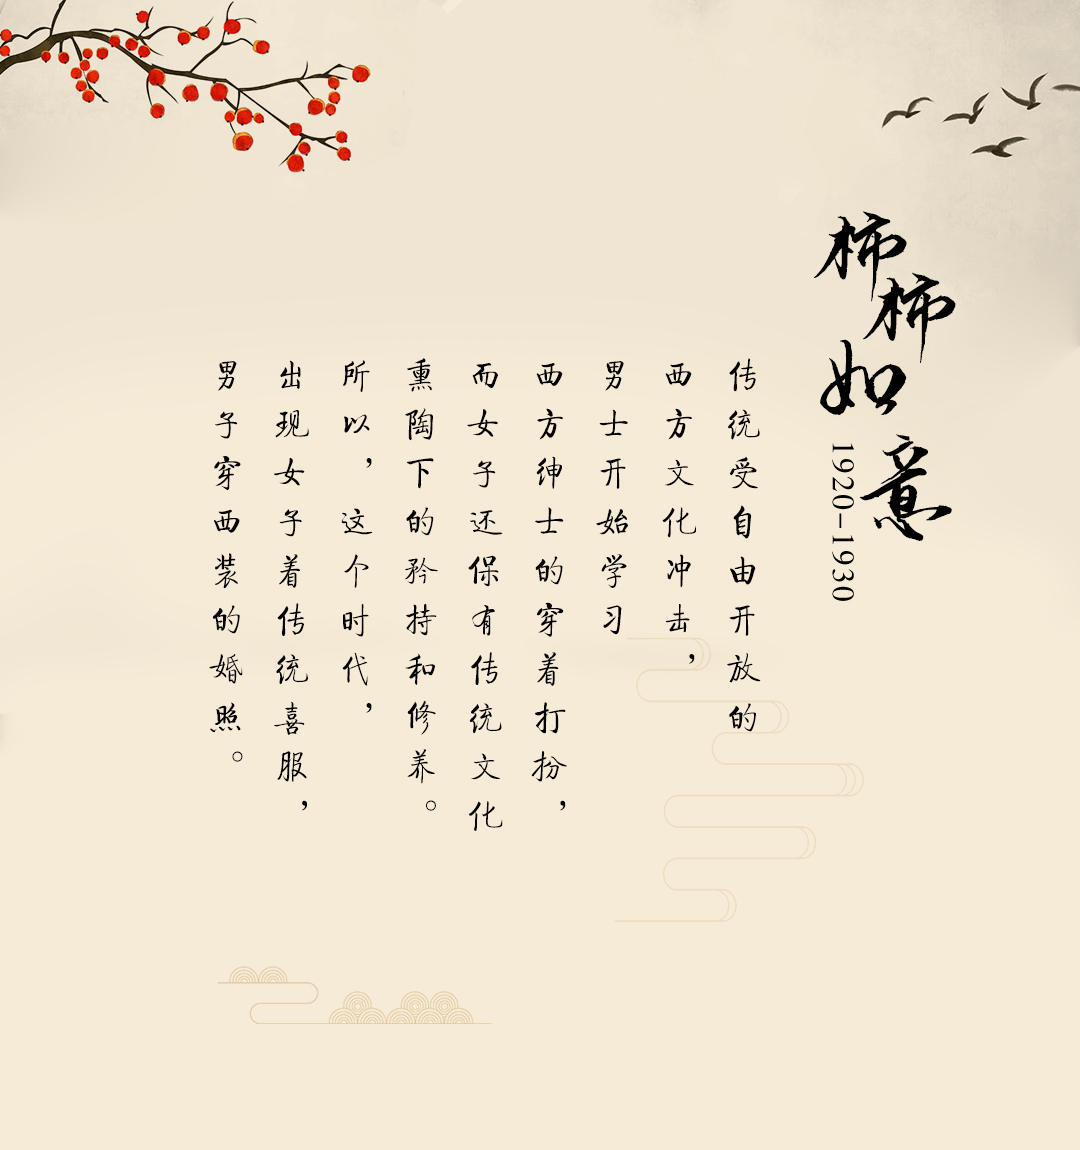 柿柿如意
1920-1930
传统受自由开放的
西方文化冲击，
男士开始学习
西方绅士的穿着打扮，
而女子还保有传统文化
熏陶下的矜持和修养。
所以，这个时代，
出现女子着传统喜服，
男子穿西装的婚照。